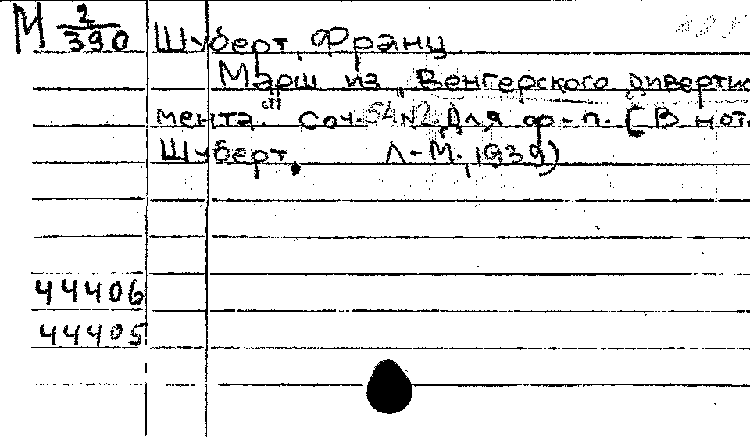 М 2/390 Шуберт, Франц
Марш из „Венгерского дивертис
мента“ Соч. 54 №2 Для ф-п. (В нот
Шуберт. Л-М., 1939)
44406
44405